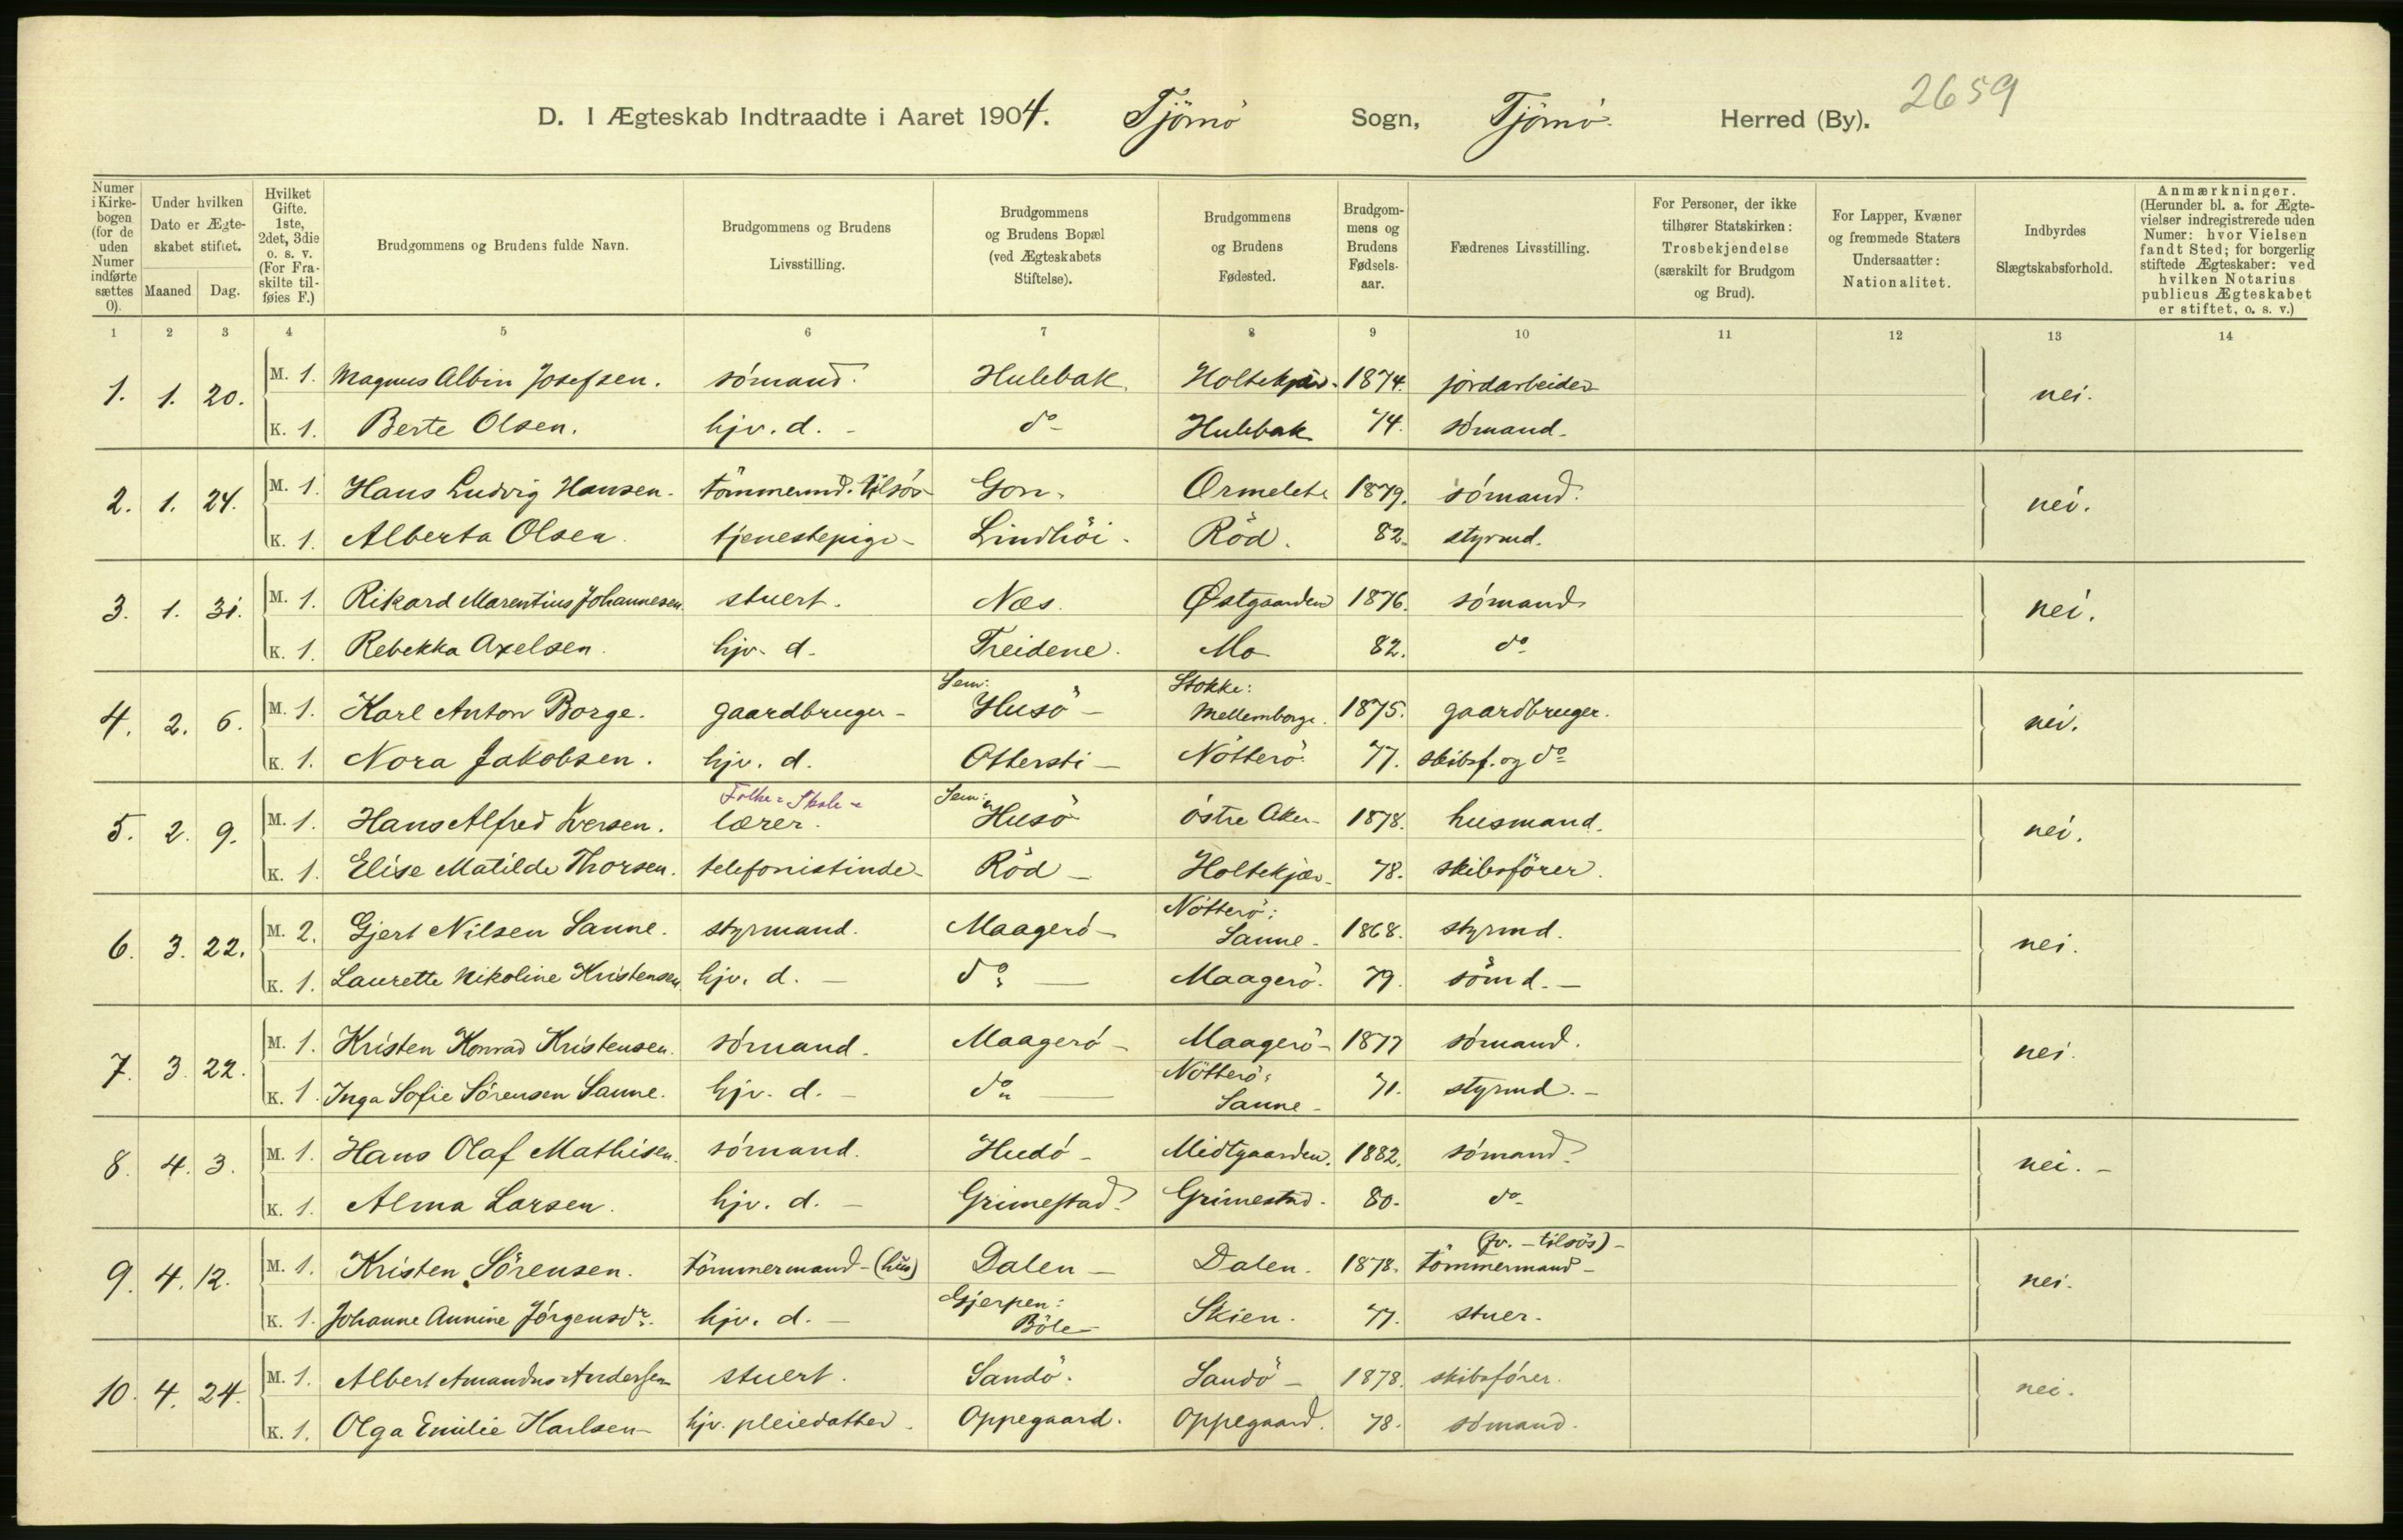 2659
D. I Ægteskab Indtraadte i Aaret 1904. Tjömö Sogn, Tjömö. Herred (By).
Numer i Kirkebogen (for de uden Numer indførte sættes 0).
Under hvilken Dato er Ægteskabet stiftet.
Maaned
Dag.
Hvilket Gifte. 1ste, 2det, 3die o. s. v. (For Fraskilte tilføies F.)
Brudgommens og Brudens fulde Navn.
Brudgommens og Brudens Livsstilling.
Brudgommens og Brudens Bopæl (ved Ægteskabets Stiftelse).
Brudgommens og Brudens Fødested.
Brudgommens og Brudens Fødselsaar.
Fædrenes Livsstilling.
For Personer, der ikke tilhører Statskirken: Trosbekjendelse (særskilt for Brudgom og Brud).
For Lapper, Kvæner og fremmede Staters Undersaatter: Nationalitet.
Indbyrdes Slægtskabsforhold.
Anmærkninger. (Herunder bl. a. for Ægtevielser indregistrerede uden Numer: hvor Vielsen fandt Sted; for borgerlig stiftede Ægteskaber: ved hvilken Notarius publicus Ægteskabet er stiftet, o. s. v.)
1 2 3 4 5 6 7 8 9 10 11 12 13 14
1. 1. 20. M. 1. Magnus Albin Josefsen. sömand. Hulebak. Holtekjær. 1874. jordarbeider nei.
K. 1. Berte Olsen. hjv. d. - do - Hulebak 74. sömand.
2. 1. 24. M. 1. Hans Ludvig Hansen. tömmermd. tilsös Gon. Ormelete 1879. sömand. nei.
K. 1. Alberta Olsen. tjenestepige - Lindhöi. Röd. 82. styrmd.
3. 1. 31. M. 1. Rikard Marentius Johannesen. stuert. Næs. Østgaarden 1876. sömand nei.
K. 1. Rebekka Axelsen. hjv. d. Treidene. Mo 82. do
4. 2. 6. M. 1. Karl Anton Borge. gaardbruger - Sem: Husö - Stokke: Mellemborge. 1875. gaardbruger. nei.
K. 1. Nora Jakobsen. hjv. d. Ottersti - Nötterö. 77. skibsf. og do
5. 2. 9. M. 1. Hans Alfred Iversen. Folke=Skole= lærer. Sem: Husö östre Aker - 1878. husmand. nei.
K. 1. Elise Matilde Thorsen. telefonistinde - Röd - Holtekjær - 78. skibsförer.
6. 3. 22. M. 2. Gjert Nilsen Sanne. styrmand. Maagerö - Nötterö: Sanne. 1868. styrmd. nei.
K. 1. Laurette Nikoline Kristensen hjv. d. - do - Maagerö. 79. sömd. -
7. 3. 22. M. 1. Kristen Konrad Kristensen. sömand. Maagerö - Maagerö - 1877 sömand. nei.
K. 1. Inga Sofie Sörensen Sanne. hjv. d. - do - Nötterö: Sanne - 71. styrmd. -
8. 4. 3. M. 1. Hans Olaf Mathisen. sömand. Hudö - Midtgaarden. 1882. sömand. nei. -
K. 1. Alma Larsen. hjv. d. - Grimestad. Grimestad. 80. do -
9. 4. 12. M. 1. Kristen Sörensen. tömmermand - (hus) Dalen - Dalen. 1878. (fv. - tilsös) - tömmermand - nei.
K. 1. Johanne Annine Jörgensdr. hjv. d. - Gjerpen: Böle - Skien. 77. stuer.
10. 4. 24. M. 1. Albert Amandus Andersen stuert. Sandö. Sandö - 1878. skibsförer. nei.
K. 1. Olga Emilie Karlsen - hjv. pleiedatter. Oppegaard. Oppegaard. 78. sömand.